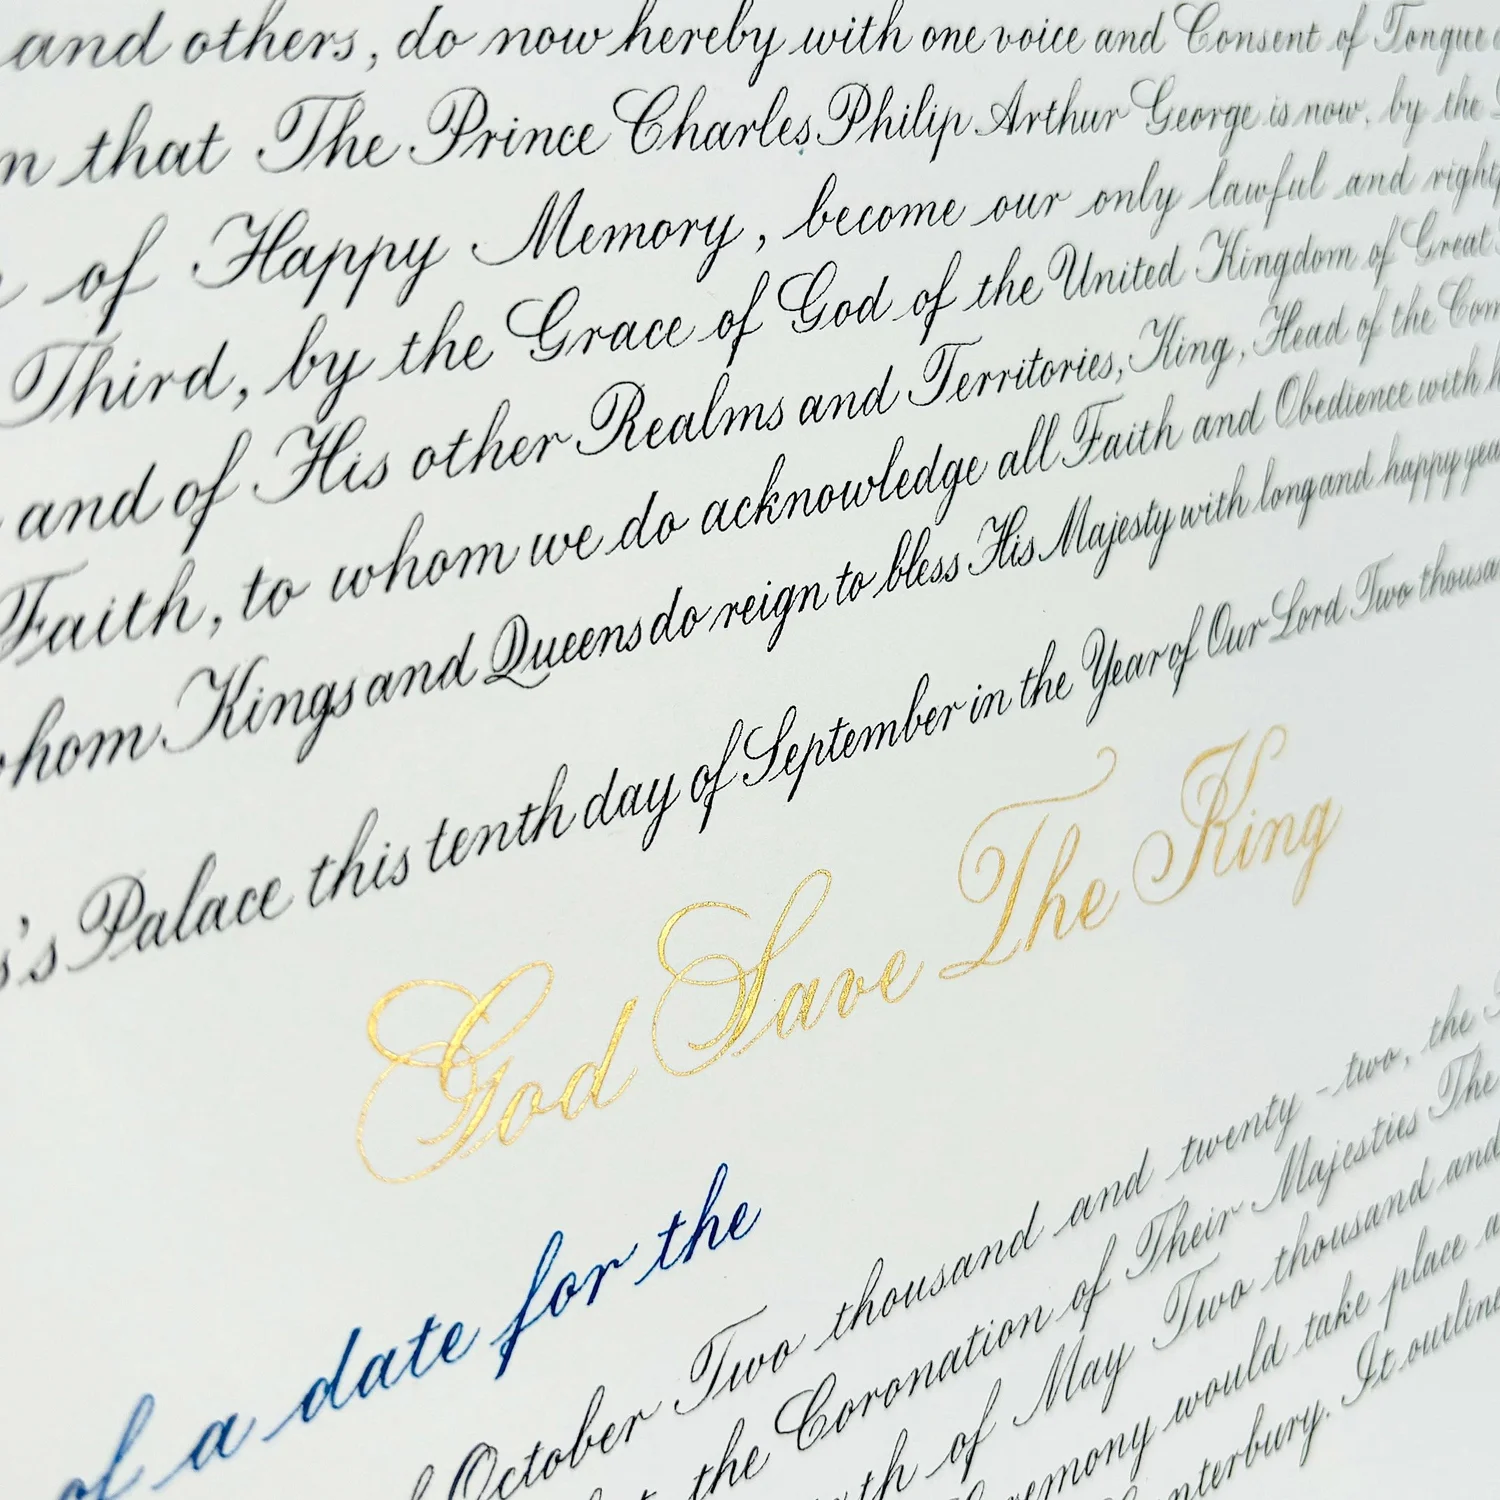 and others, do now hereby with one voice and Consent of Tongue
that The Prince Charles Philip Arthur George is now, by the
of Happy Memory, become our only lawful and
Third, by the Grace of God of the United Kingdom of Great
and of His other Realms and Territories, King, Head of the
Faith, to whom we do acknowledge all Faith and Obedience with
Kings and Queens do reign to bless His Majesty with long and happy
Palace this tenth day of September in the Year of Our Lord Two
God Save The King
of a date for the
October Two thousand and twenty-two, the
the Coronation of Their Majesties The
of May Two thousand and
would take place
It